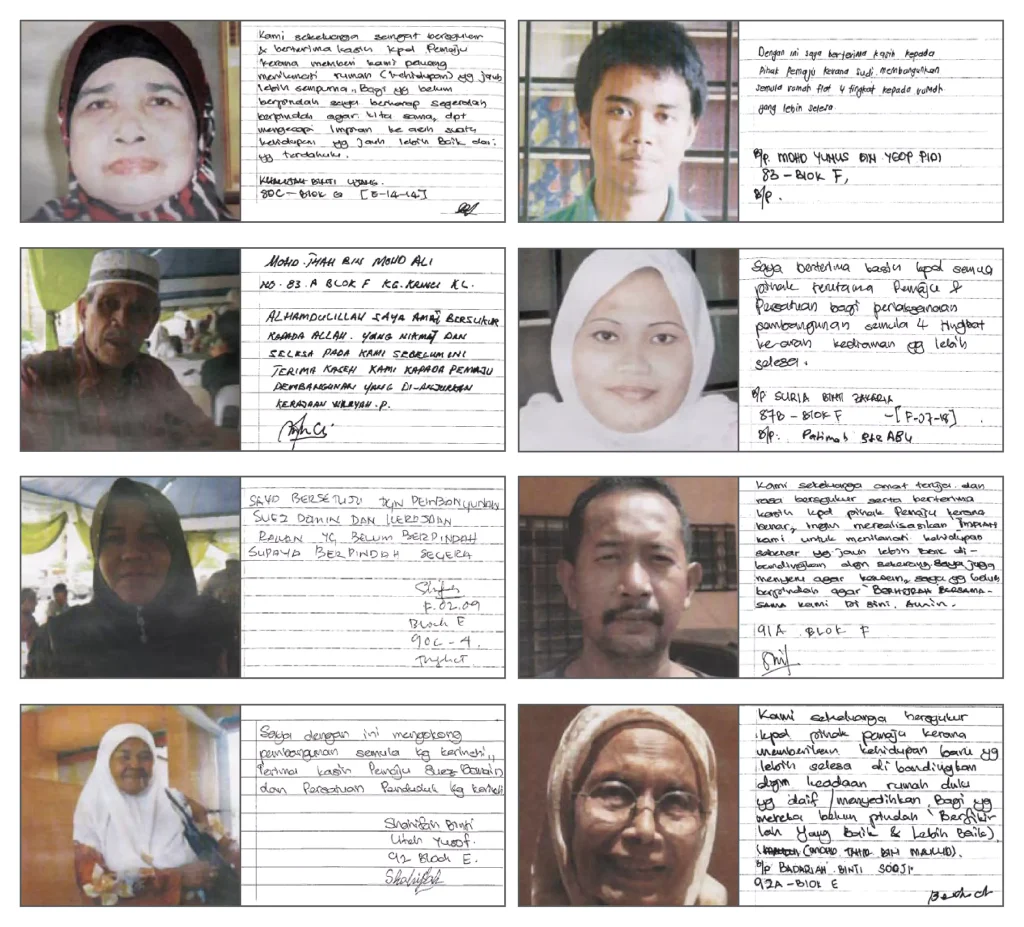 Kami sekeluarga sangat bersyukur
& berterima kasih kpd Pemaju
kerana memberi kami peluang
menikmati rumah (kehidupan) yg jauh
lebih sempurna. Bagi yg belum
berpindah saya berharap segeralah
berpindah agar kita sama, dpt
mengecapi Impian ke arah suatu
kehidupan yg jauh lebih Baik dari
yg terdahulu.
BINTI
80C - BLOK G [E-14-14]
Dengan ini saya berterima kasih kepada
Pihak Pemaju kerana sudi membangunkan
semula rumah flat 4 tingkat kepada rumah
yang lebih selesa.
B/p. MOHD YUNUS BIN YEOP PIDI
83 - BLOK F,
B/p.
MOHD. THAH BIN MOHD ALI
NO. 83. A BLOK F KG. KRINCI KL.
ALHAMDULILLAH SAYA AMAT BERSUKUR
KAPADA ALLAH. YANG NIKMAT DAN
SELESA PADA KAMI SEBELUM INI
TERIMA KASEH KAMI KAPADA PEMAJU
PEMBANGUNAN YANG DI-ANJURKAN
KERAJAAN WILAYAH. P.
Saya berterima kasih kpd semua
pihak terutama Pemaju &
Persatuan bagi perlaksanaan
pembangunan semula 4 tingkat
ke arah kediaman yg lebih
selesa.
B/p SURIA BINTI ZAKARIA
87B - BLOK F -[F-07-18]
B/p: Patimah Bte ABU
SAYA BERSETUJU DGN PEMBANGUNAN
SUEZ DOMIN DAN KERAJAAN
RAKAN YG BELUM BERPINDAH
SUPAYA BERPINDAH SEGERA
F.02.09
Block E
90C - 4.
Tingkat
Kami sekeluarga amat teruja dan
rasa bersyukur serta berterima
kasih kpd pihak Pemaju kerana
benar, Ingin merealisasikan IMPIAN
kami untuk menikmati kehidupan
sebenar yg jauh lebih baik di-
bandingkan dgn sekarang. Saya juga
menyeru agar kawan, saya yg belum
berpindah agar BERHIJRAH BERSAMA-
SAMA kami Di Sini. Amin.
91A BLOK F
Saya dengan ini menyokong
pembangunan semula kg kerinchi,,
Terima kasih Pemaju Suez Domain
dan Persatuan Penduduk Kg kerinchi
Sharifah Binti
Uteh Yusof.
92 Block E.
Sharifah
Kami sekeluarga bersyukur
kpd pihak pemaju kerana
memberikan kehidupan baru yg
lebih selesa di bandingkan
dgn keadaan rumah dulu
yg daif / menyedihkan. Bagi yg
mereka belum pindah 'Berfikir
lah Yang Baik & Lebih Baik).
(MOHD TAHIR BIN MAKLUD).
B/p BADARIAH BINTI SODJI.
92A - BLOK E